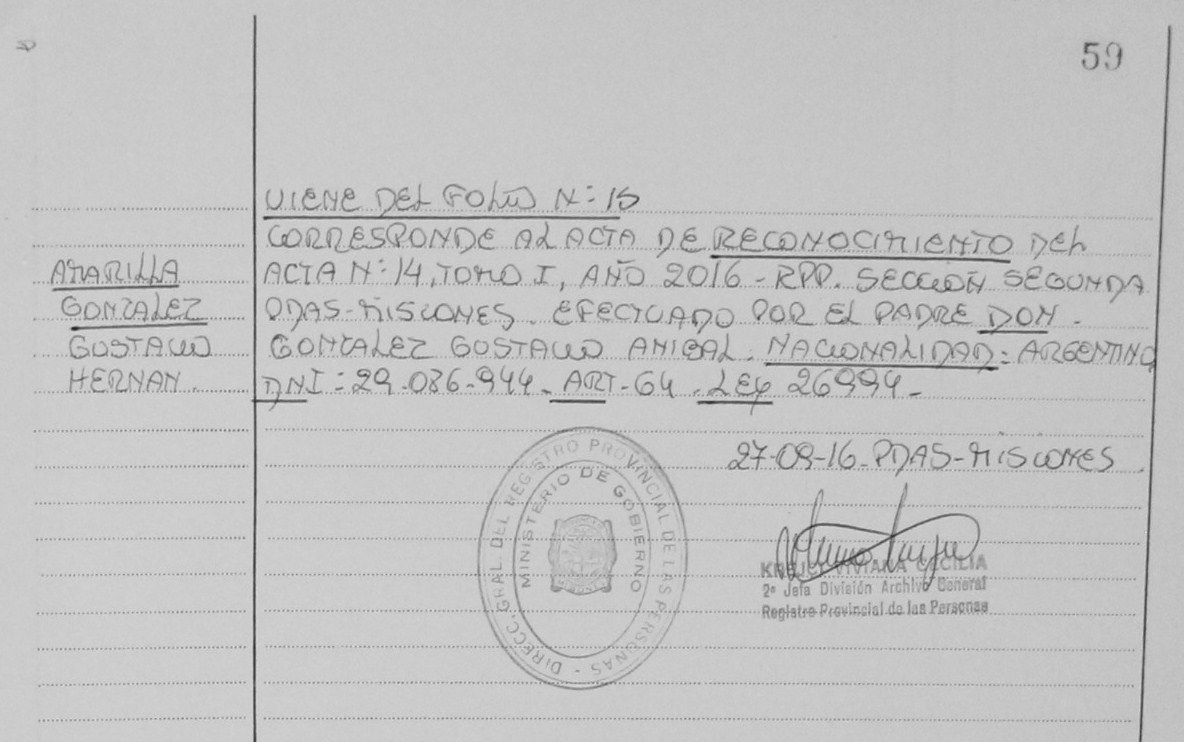 59
VIENE DEL FOLIO N: 15
CORRESPONDE AL ACTA DE RECONOCIMIENTO DEL
ACTA N: 14, TOMO I, AÑO 2016 - RPP. SECCIÓN SEGUNDA
PDAS-MISIONES. EFECTUADO POR EL PADRE DON.
GONZALEZ GUSTAVO ANIBAL. NACIONALIDAD: ARGENTINO
DNI: 29.086.944. ART-64. LEY 26994-
AMARILLA
GONZALEZ
GUSTAVO
HERNAN.
27-09-16-PDAS-MISIONES
DIRECC. GRAL. DEL REGISTRO PROVINCIAL DE LAS PERSONAS -
MINISTERIO DE GOBIERNO
VIVIANA CECILIA
2º Jefa División Archivo General
Registro Provincial de las Personas